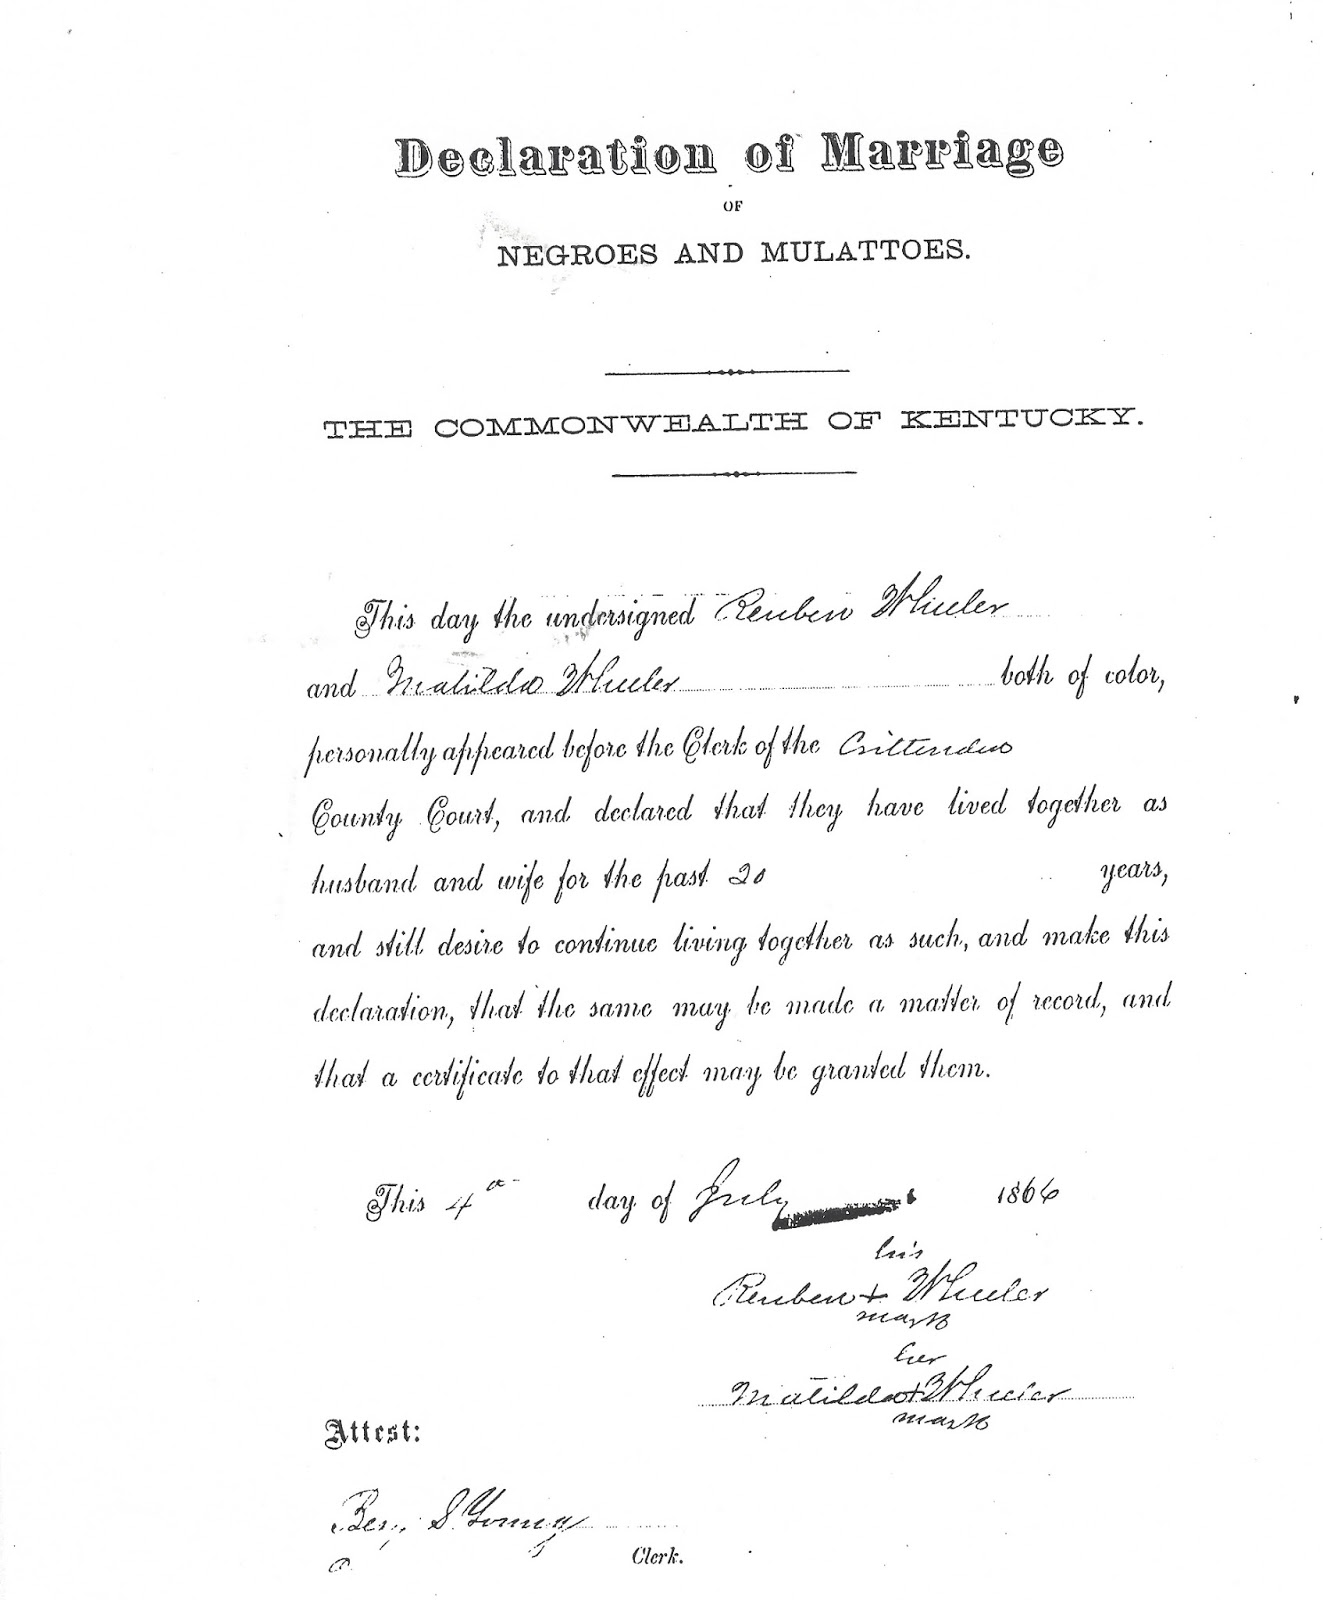 Declaration of Marriage
OF
NEGROES AND MULATTOES.
THE COMMONWEALTH OF KENTUCKY.
This day the undersigned Reuben Wheeler
and Matilda Wheeler both of color,
personally appeared before the Clerk of the Crittenden
County Court, and declared that they have lived together as
husband and wife for the past 20 years,
and still desire to continue living together as such, and make this
declaration, that the same may be made a matter of record, and
that a certificate to that effect may be granted them.
This 4th day of July 1866
his
Reuben + Wheeler
mark
her
Matilda + Wheeler
mark
Attest:
Benj. S. Young
Clerk.